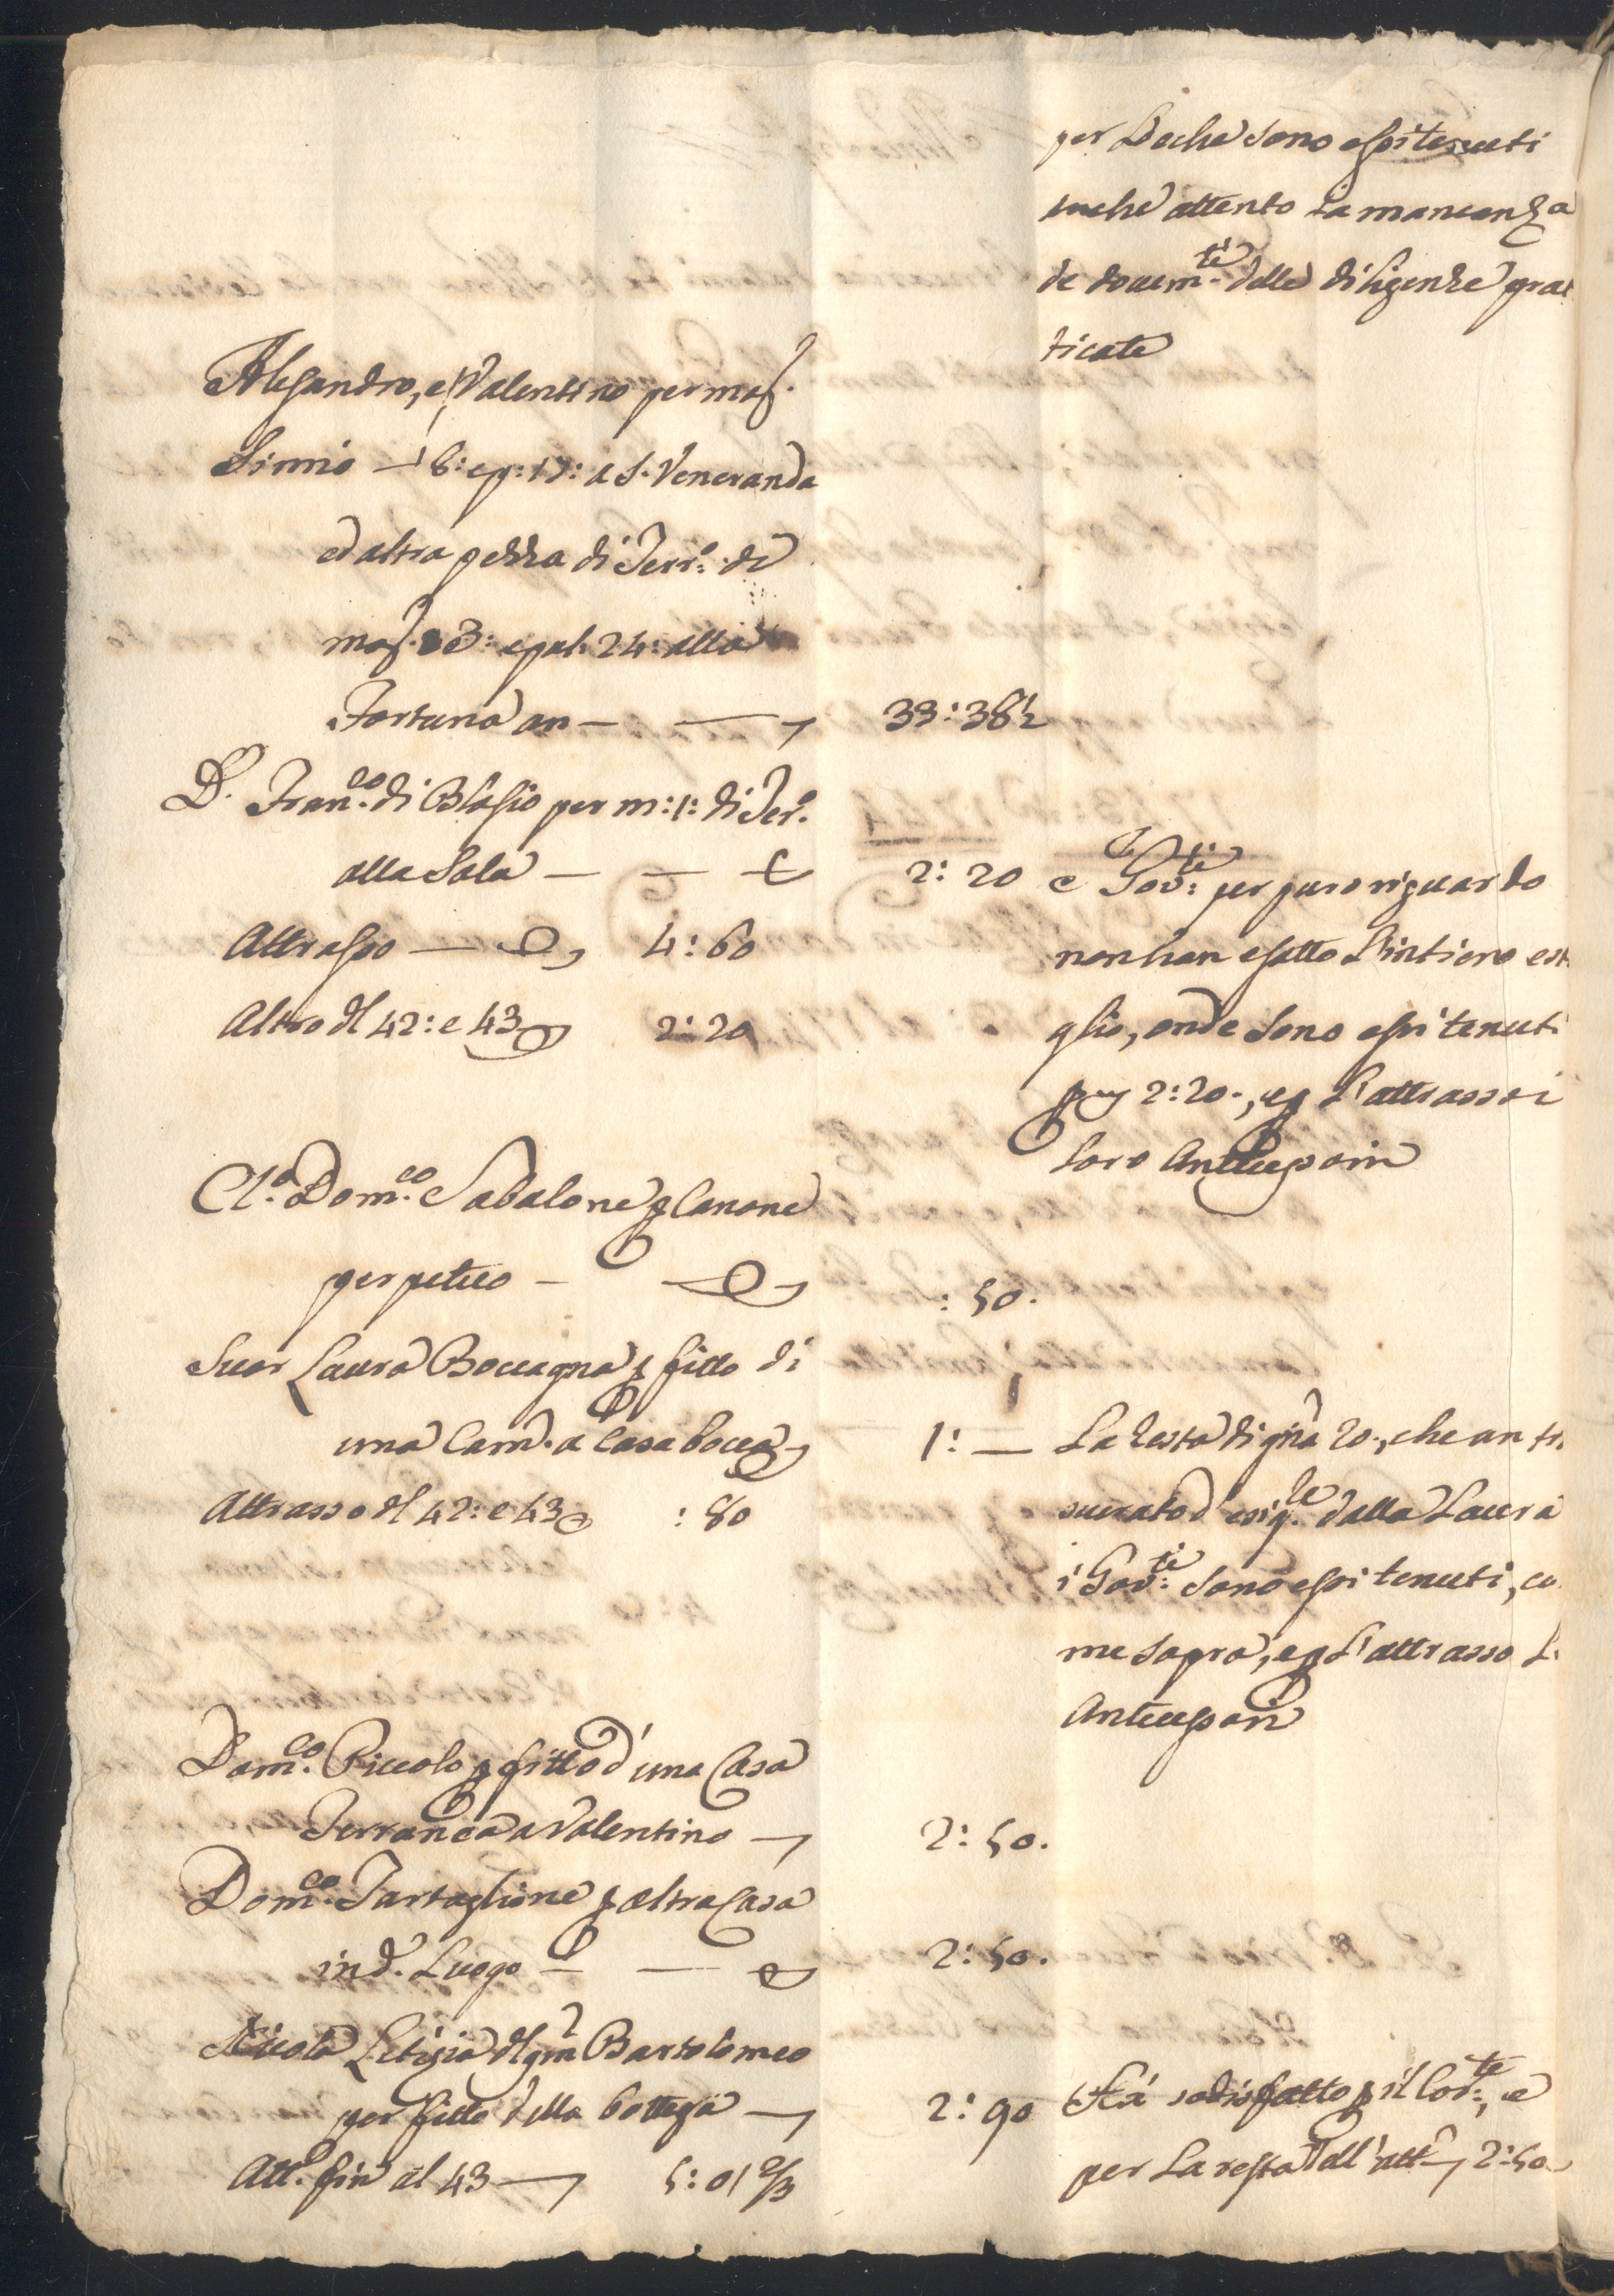 per Loche sono essi tenuti
anche attento la mancanza
de docum.ti delle diligenze prat
ticate
Alesandro, e Valentino per mog.
Simio — 6: e p: 17: a S. Veneranda
ed altra pezza di Terr.o di
mog. 3: e pal: 24: alla
Fortuna an — — 33:38½
D. Fran.co di Blasio per m: 1: di Ter.o
alla Sala — — 2:20 e Gov.ti per puro riguardo
Attrasso — 4:60 non han esatto l'intiero est
Altro dl 42: e 43 2:20 glio, onde sono essi tenuti
per 2:20., e p l'attrasso i
loro Antecessori
Cl.o Dom.co Sabalone p Canone
perpetuo — :50.
Suor Laura Boccagna p fitto di
una Cam.a a Casa bocca 1:— La resta di gña 20., che an tra
Attrasso dl 42: e 43 :80 scurato d'esig.le dalla Laura
i Gov.ti sono essi tenuti, co
me sopra, e p l'attrasso l'
Antecessori
Dom.co Piccolo p fitto d'una Casa
Terranea a Valentino — 2:50.
Dom.co Tartaglione p altra Casa
in d.o Luogo — — 2:50.
Nicola Letizia dl qm Bartolomeo
per fitto della bottega — 2:90 Hà sodisfatto p il Cor.te, e
Att.o fin al 43 — 5:01⅔ per la resta dell'att.o 2:50